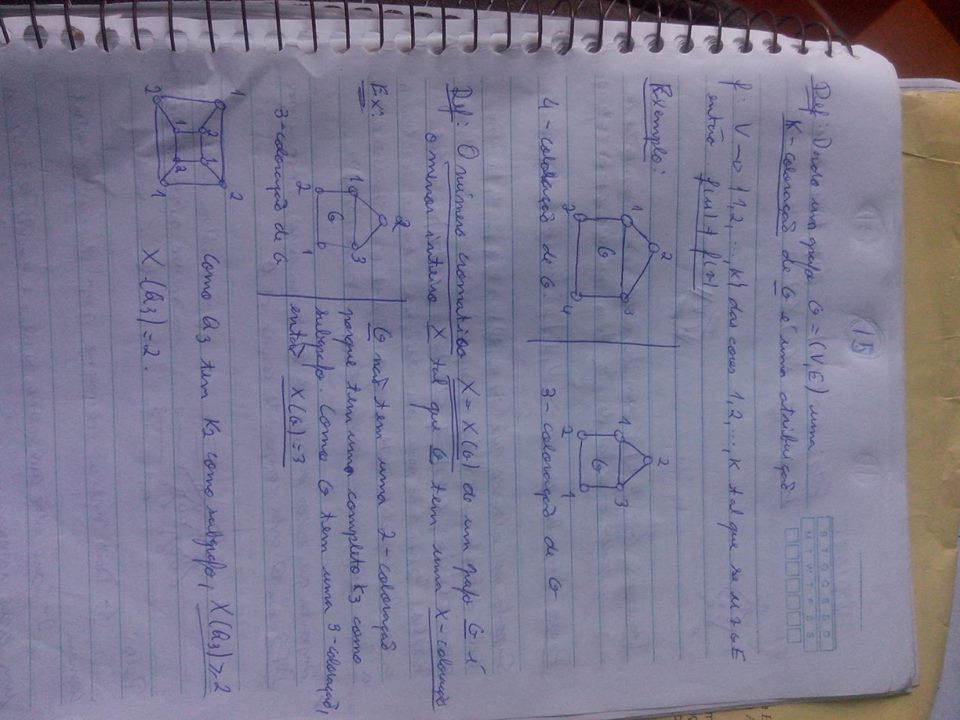 15
Def: Dado um grafo G = (V, E) uma
K-coloração de G é uma atribuição
f: V → {1,2,...,K} das cores 1,2,...,K tal que se uv ∈ E
então f(u) ≠ f(v)
Exemplo:
1 2 3 2 4 G
1 2 3 2 1 G
4-coloração de G.
3-coloração de G
Def: O número cromático X = X(G) de um grafo G é
o menor inteiro X tal que G tem uma X-coloração
Ex:
1 2 3 2 1 G
3-coloração de G
G não tem uma 2-coloração
porque tem um completo K3 como
subgrafo. Como G tem uma 3-coloração,
então X(G)=3
1 2 2 1 1 2 2 1
Como Q3 tem K2 como subgrafo, X(Q3) ≥ 2
X(Q3) = 2.